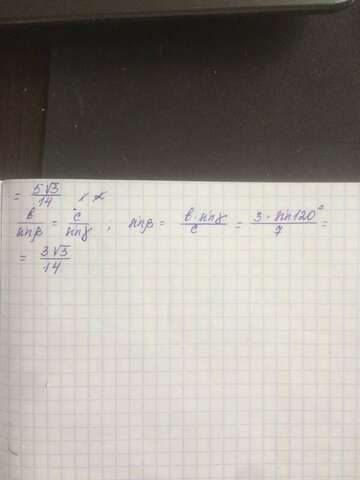 = 5√3/14
в/sinβ = c/sinγ ; sinβ = в·sinγ/c = 3·sin120°/7 =
= 3√3/14